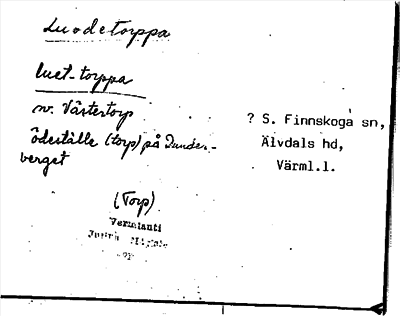 Luodetorppa
luet-torppa
sv. Västertorp
ödeställe (torp) på Dunder-
berget
? S. Finnskoga sn,
Älvdals hd,
Värml.l.
(Torp)
Vermlanti